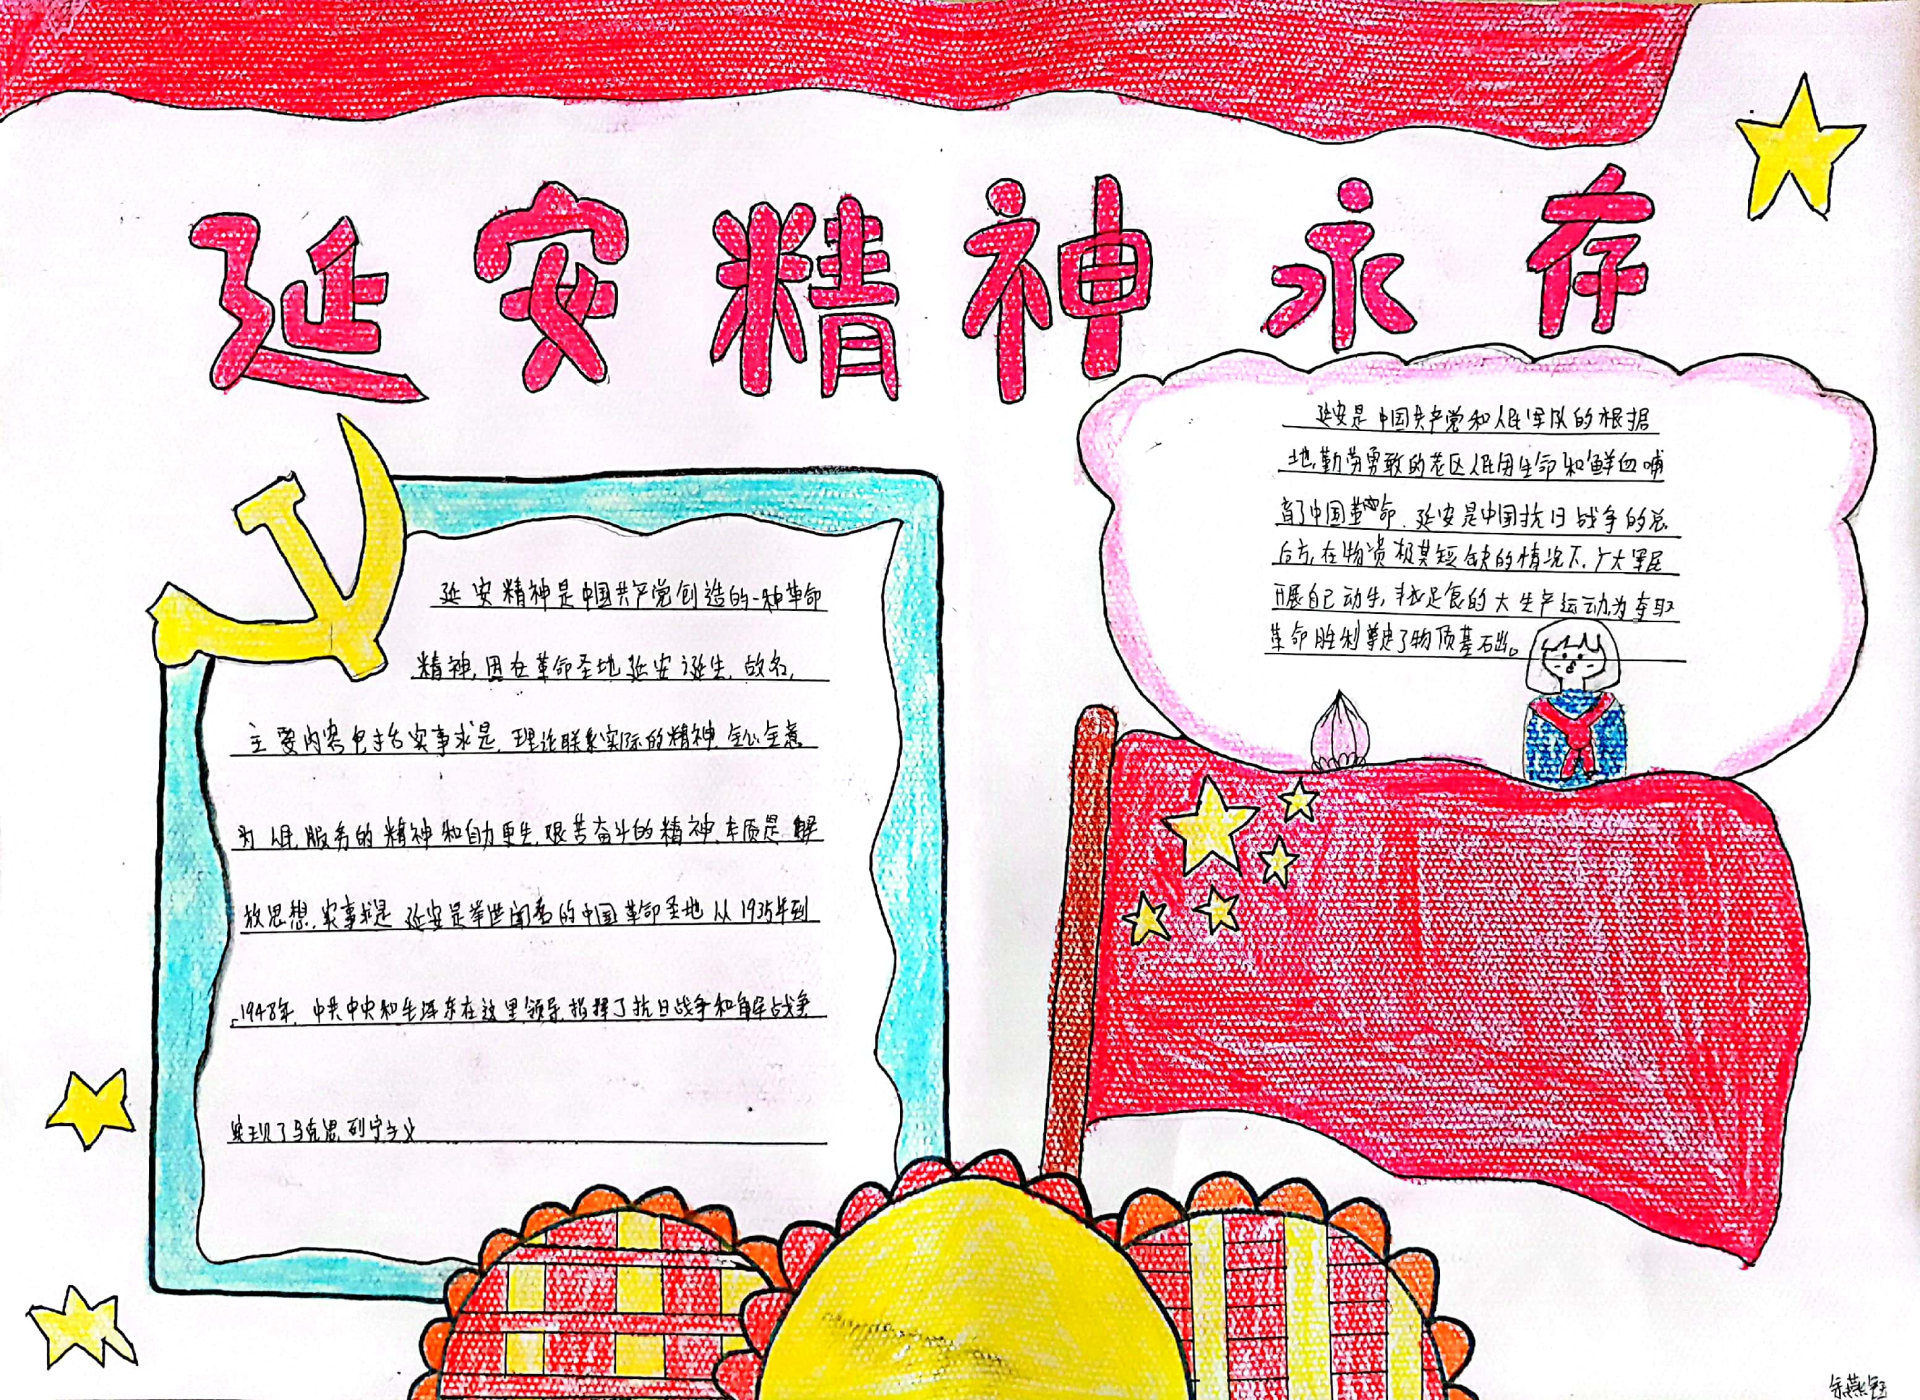 延安精神永存
延安精神是中国共产党创造的一种革命
精神,因在革命圣地延安诞生,故名,
主要内容包括实事求是,理论联系实际的精神,全心全意
为人民服务的精神和自力更生,艰苦奋斗的精神,本质是解
放思想,实事求是 延安是举世闻名的中国革命圣地 从1935年到
1948年,中共中央和毛泽东在这里领导,指挥了抗日战争和解放战争
实现了马克思列宁主义
延安是中国共产党和人民军队的根据
地,勤劳勇敢的老区人民用生命和鲜血哺
育了中国革命,延安是中国抗日战争的总
后方,在物资极其短缺的情况下,广大军民
开展自己动手,丰衣足食的大生产运动为夺取
革命胜利奠定了物质基础。